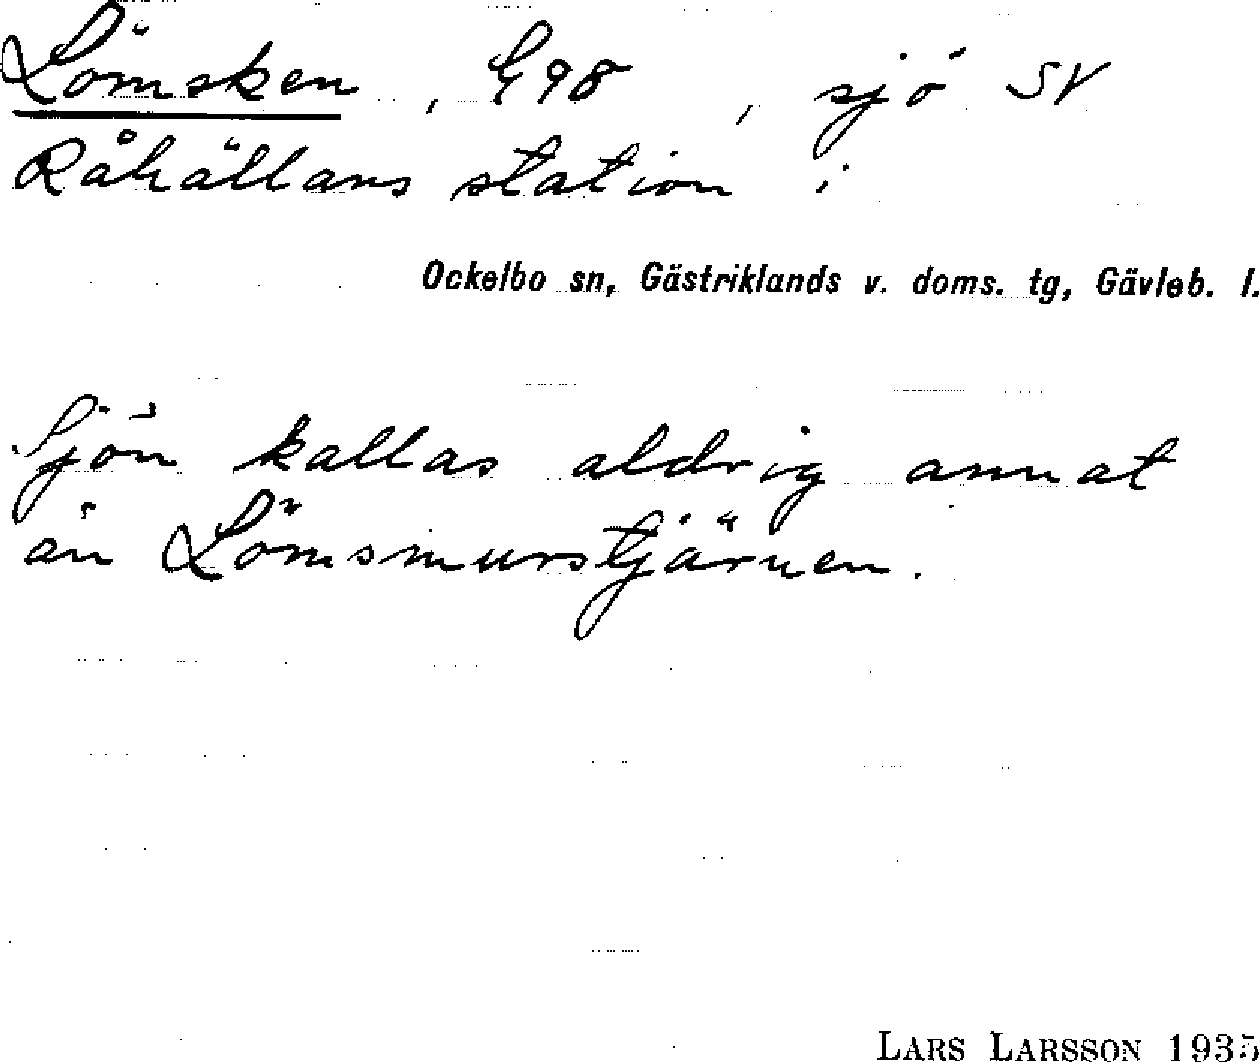 Lömsken, G98, sjö SV
Råhällans station i
Ockelbo sn, Gästriklands v. doms. tg, Gävleb. l.
Sjön kallas aldrig annat
än Lömsmurstjärnen.
LARS LARSSON 1935